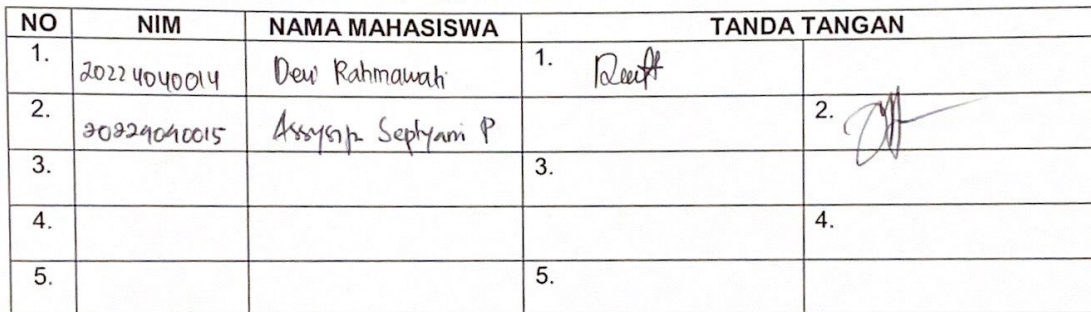 NO NIM NAMA MAHASISWA TANDA TANGAN
1. 20224040014 Dewi Rahmawati 1.
2. 20224040015 Septyani P 2.
3. 3.
4. 4.
5. 5.